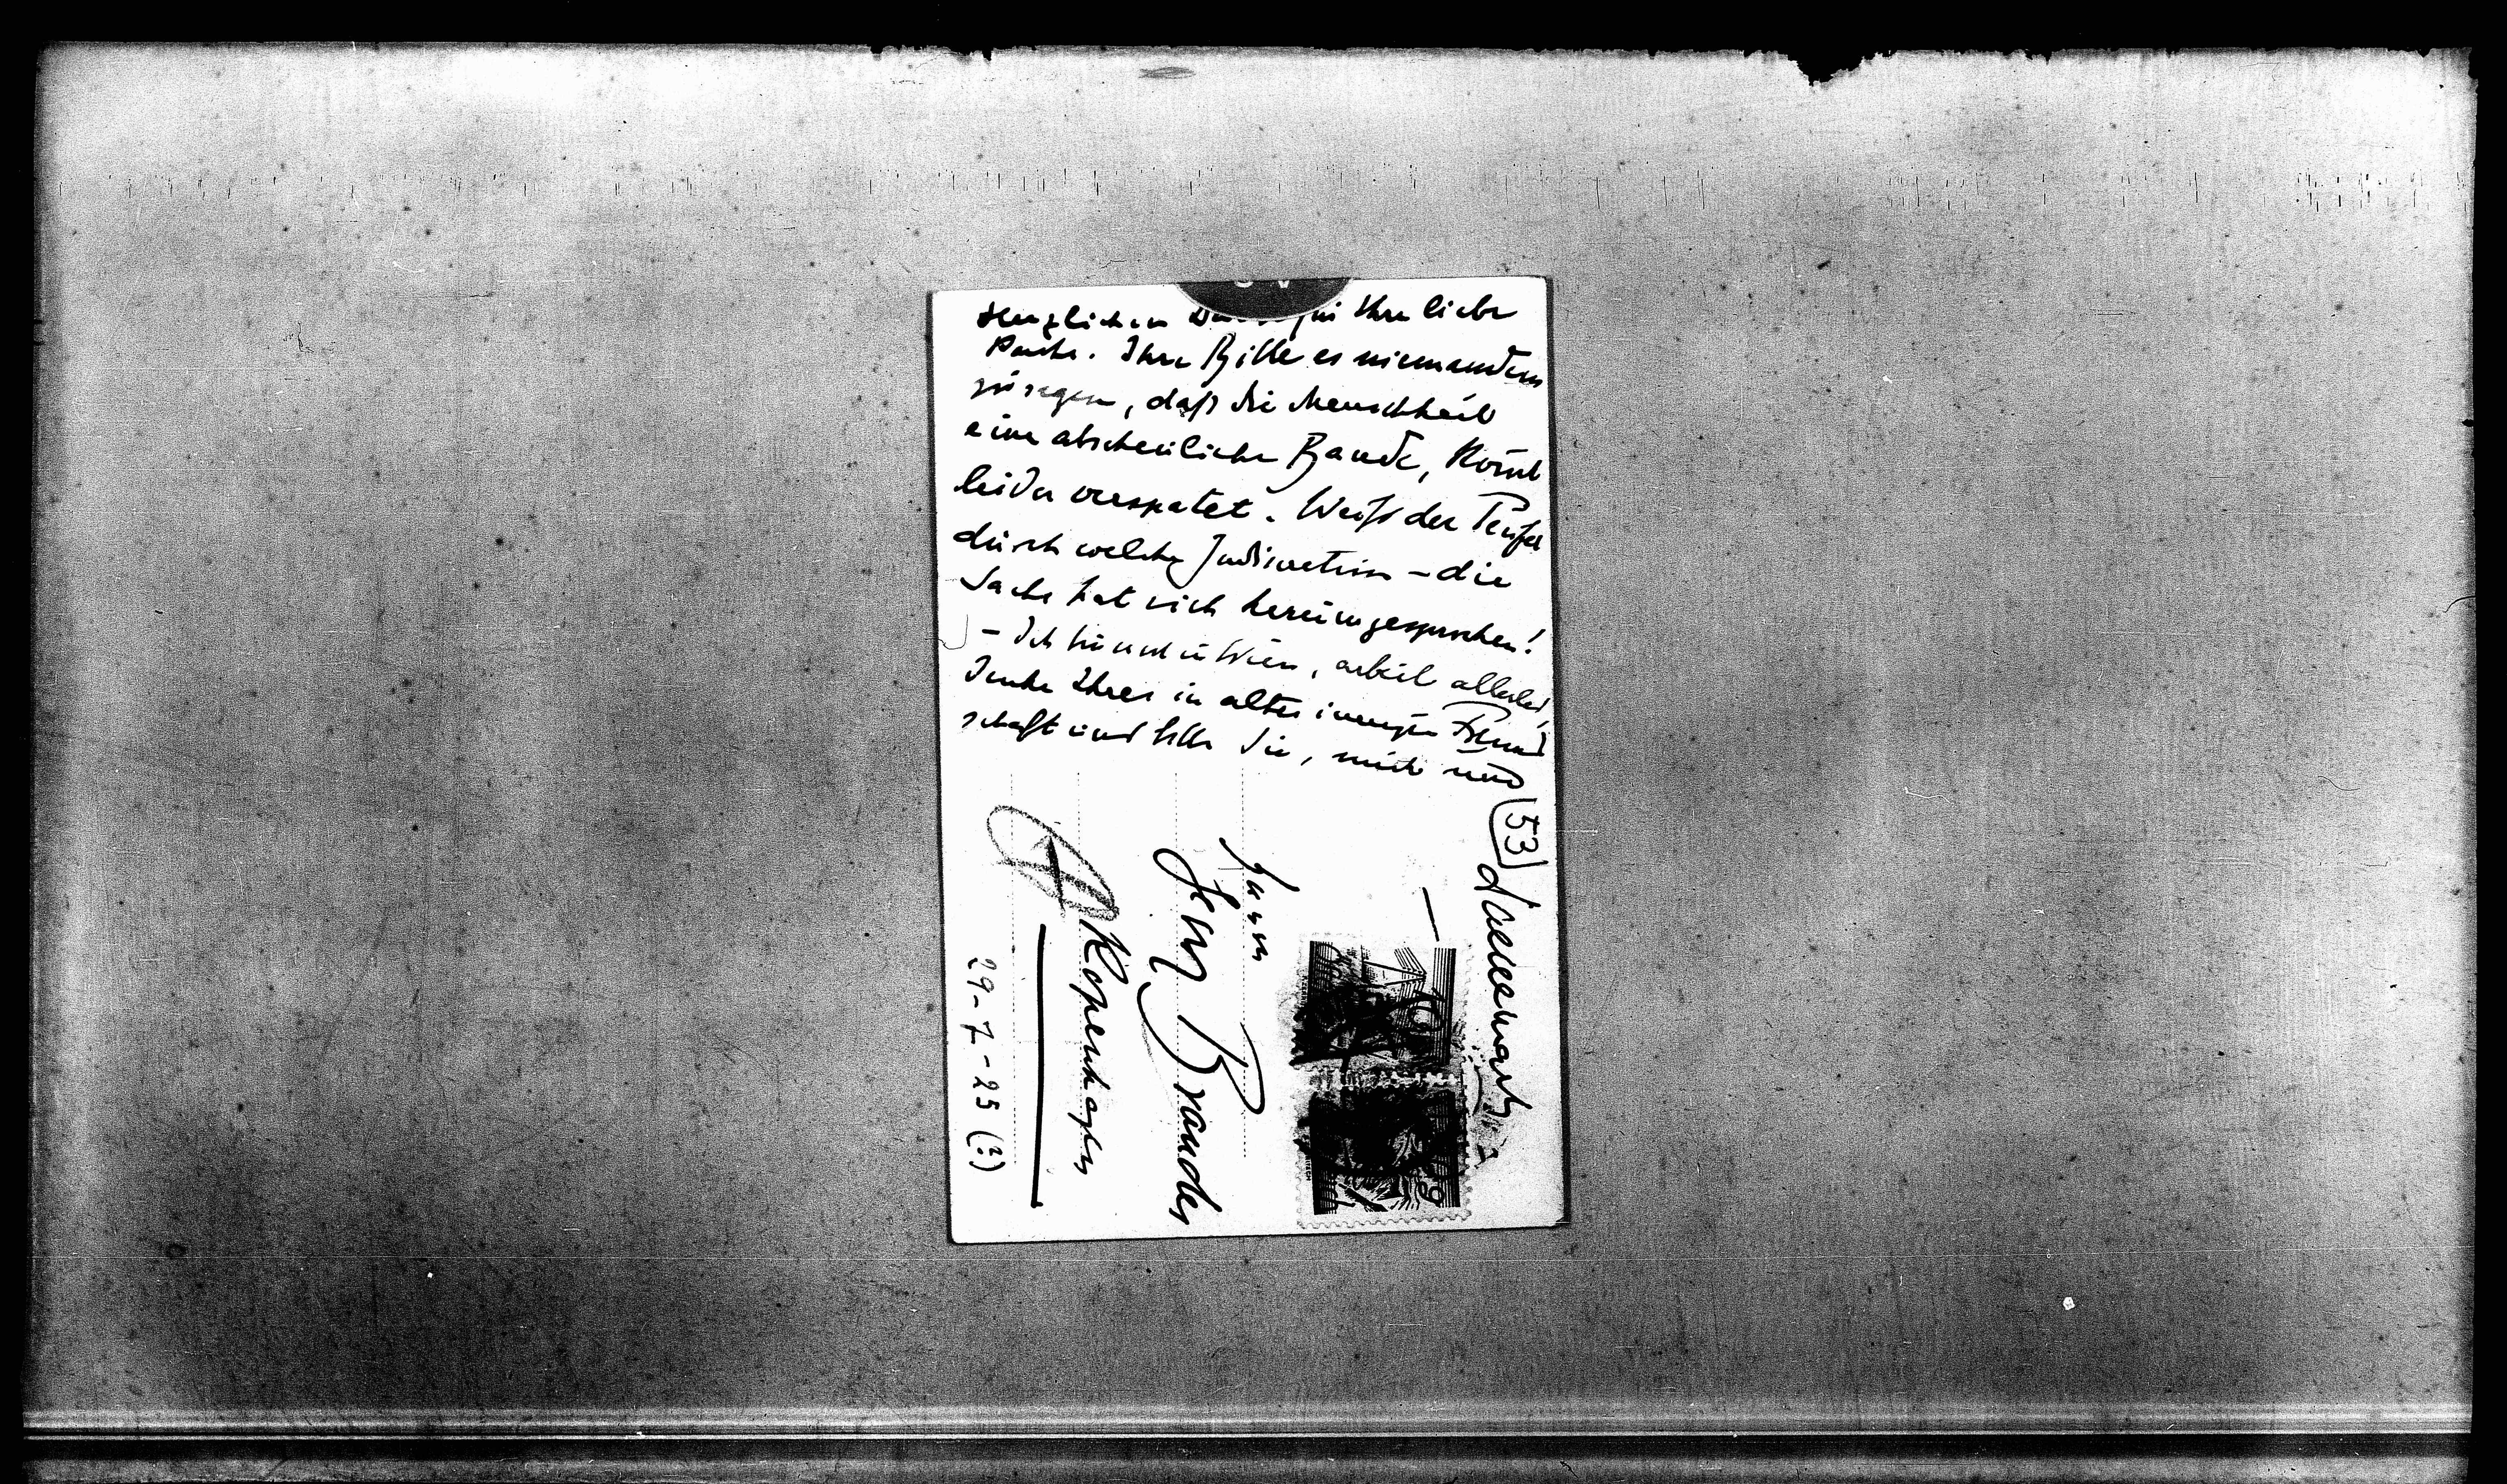 Herzlichen Dank für Ihre liebe
Karte. Ihre Bitte es niemandem
zu sagen, daß die Menschheit
eine abscheuliche Bande, kommt
leider verspätet. Weiß der Teufel
durch welche Indiscretion – die
Sache hat sich herumgesprochen!
– Ich bin in Wien, arbeite allerlei,
denke Ihrer in alter inniger Freund
schaft und bitte Sie, mich
53
Daenemark
Herrn
Georg Brandes
Kopenhagen
29-7-25 (?)